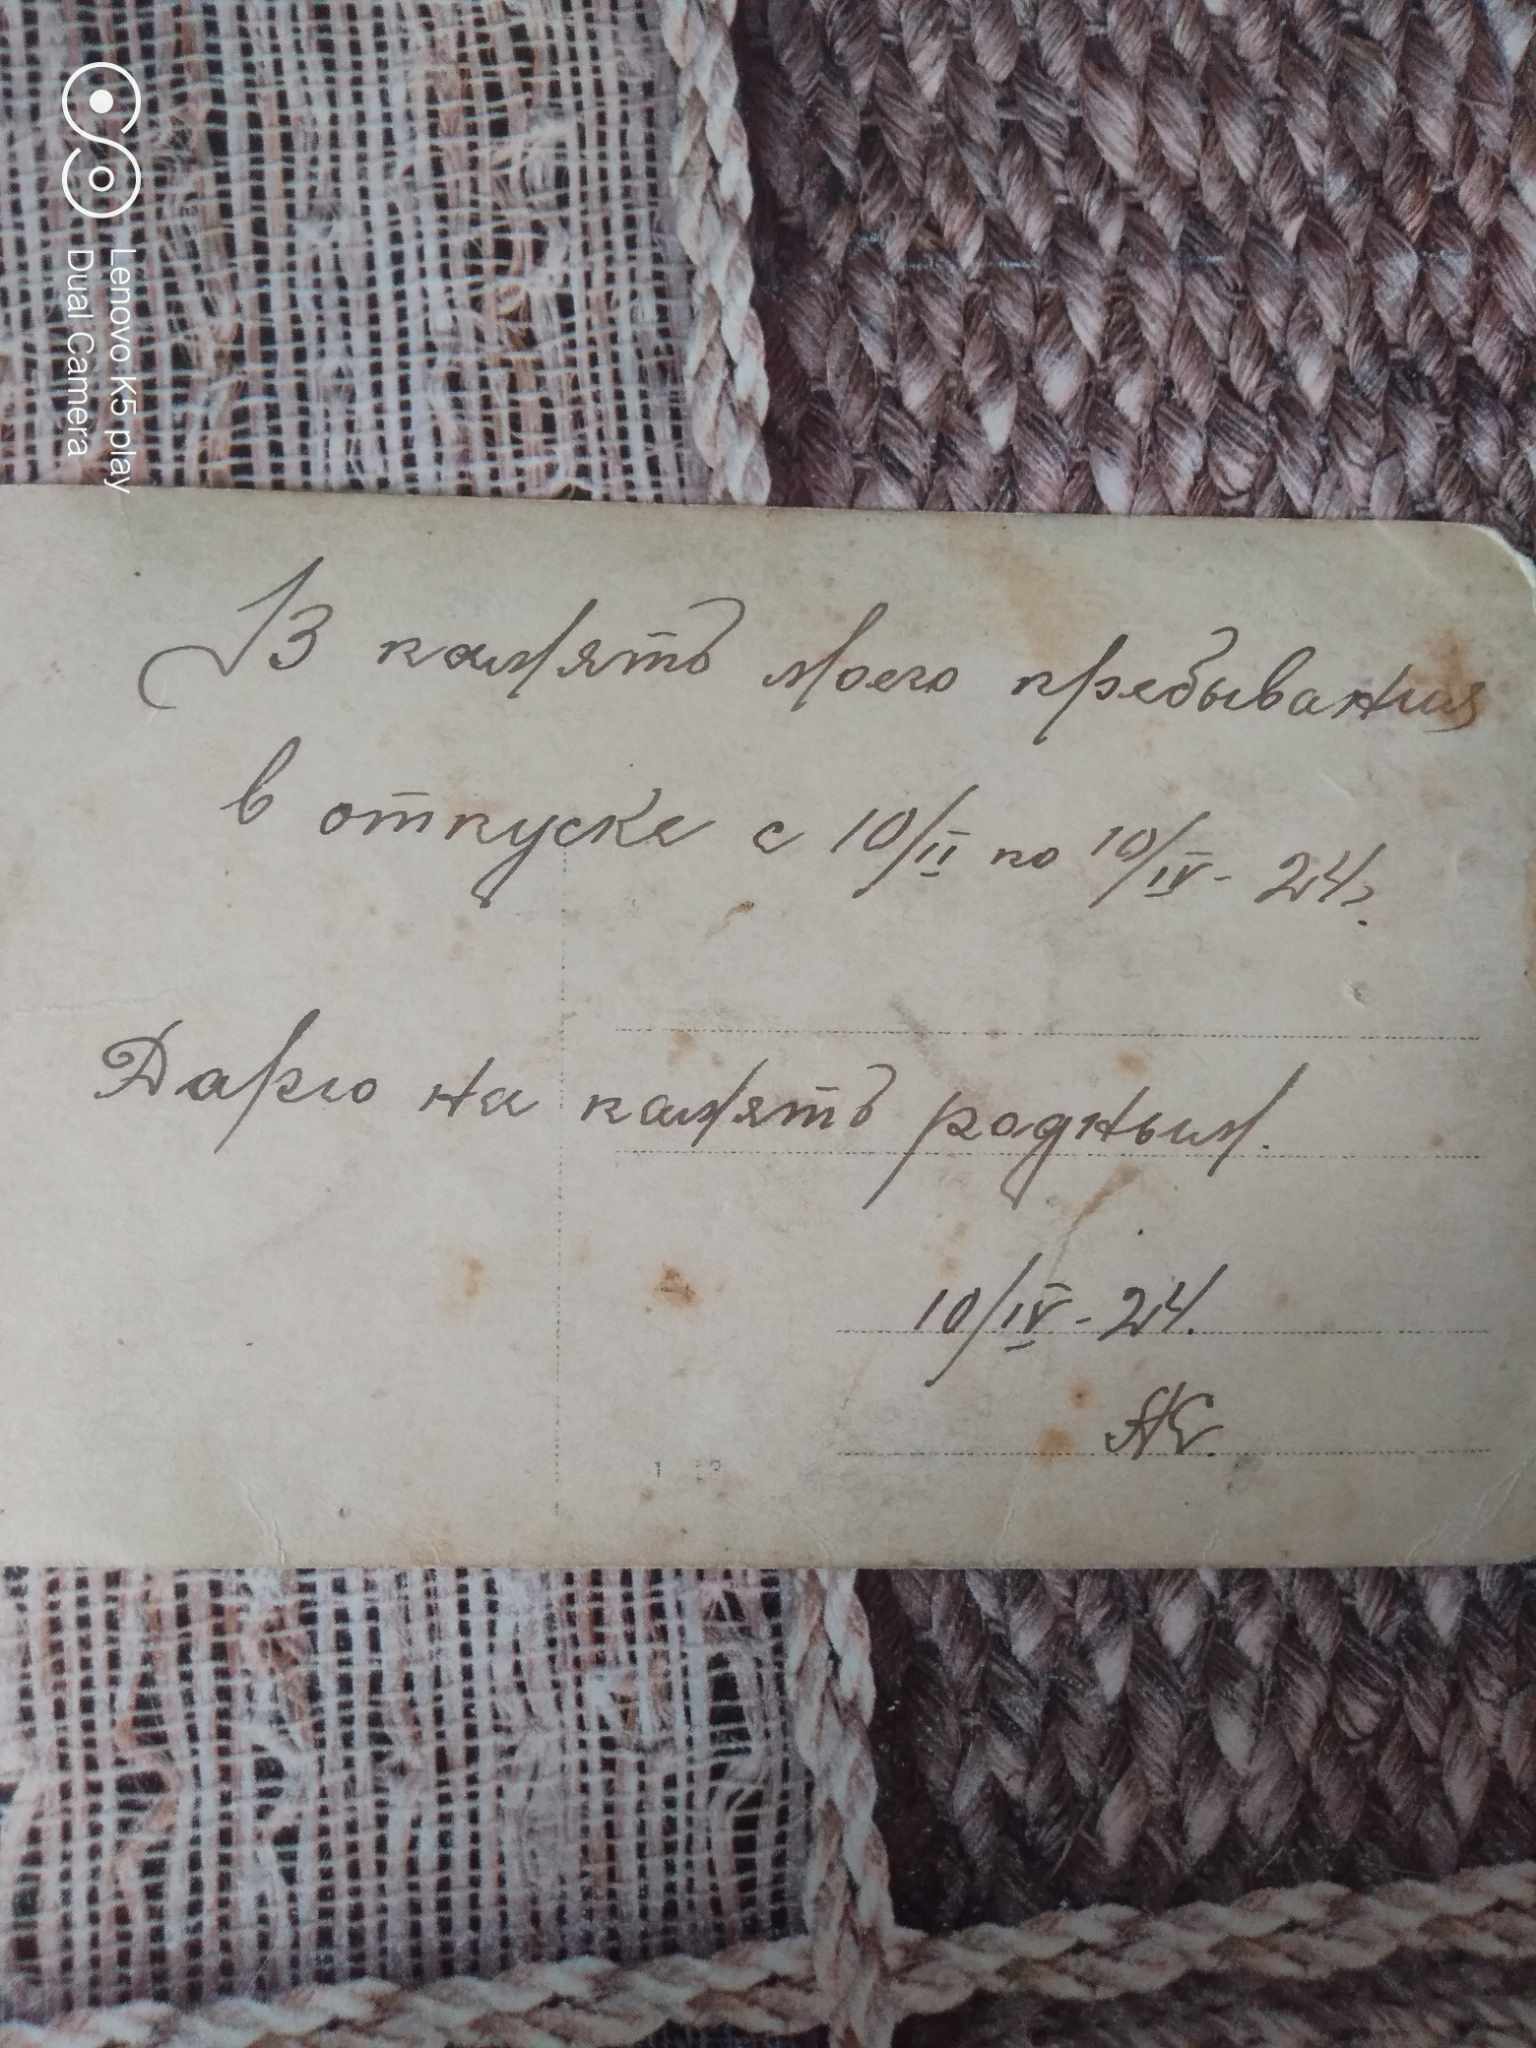 В память моего пребывания
в отпуске с 10/II по 10/IV - 24 г.
Дарю на память родным.
10/IV - 24.
АЕ.
Lenovo K5 play
Dual Camera